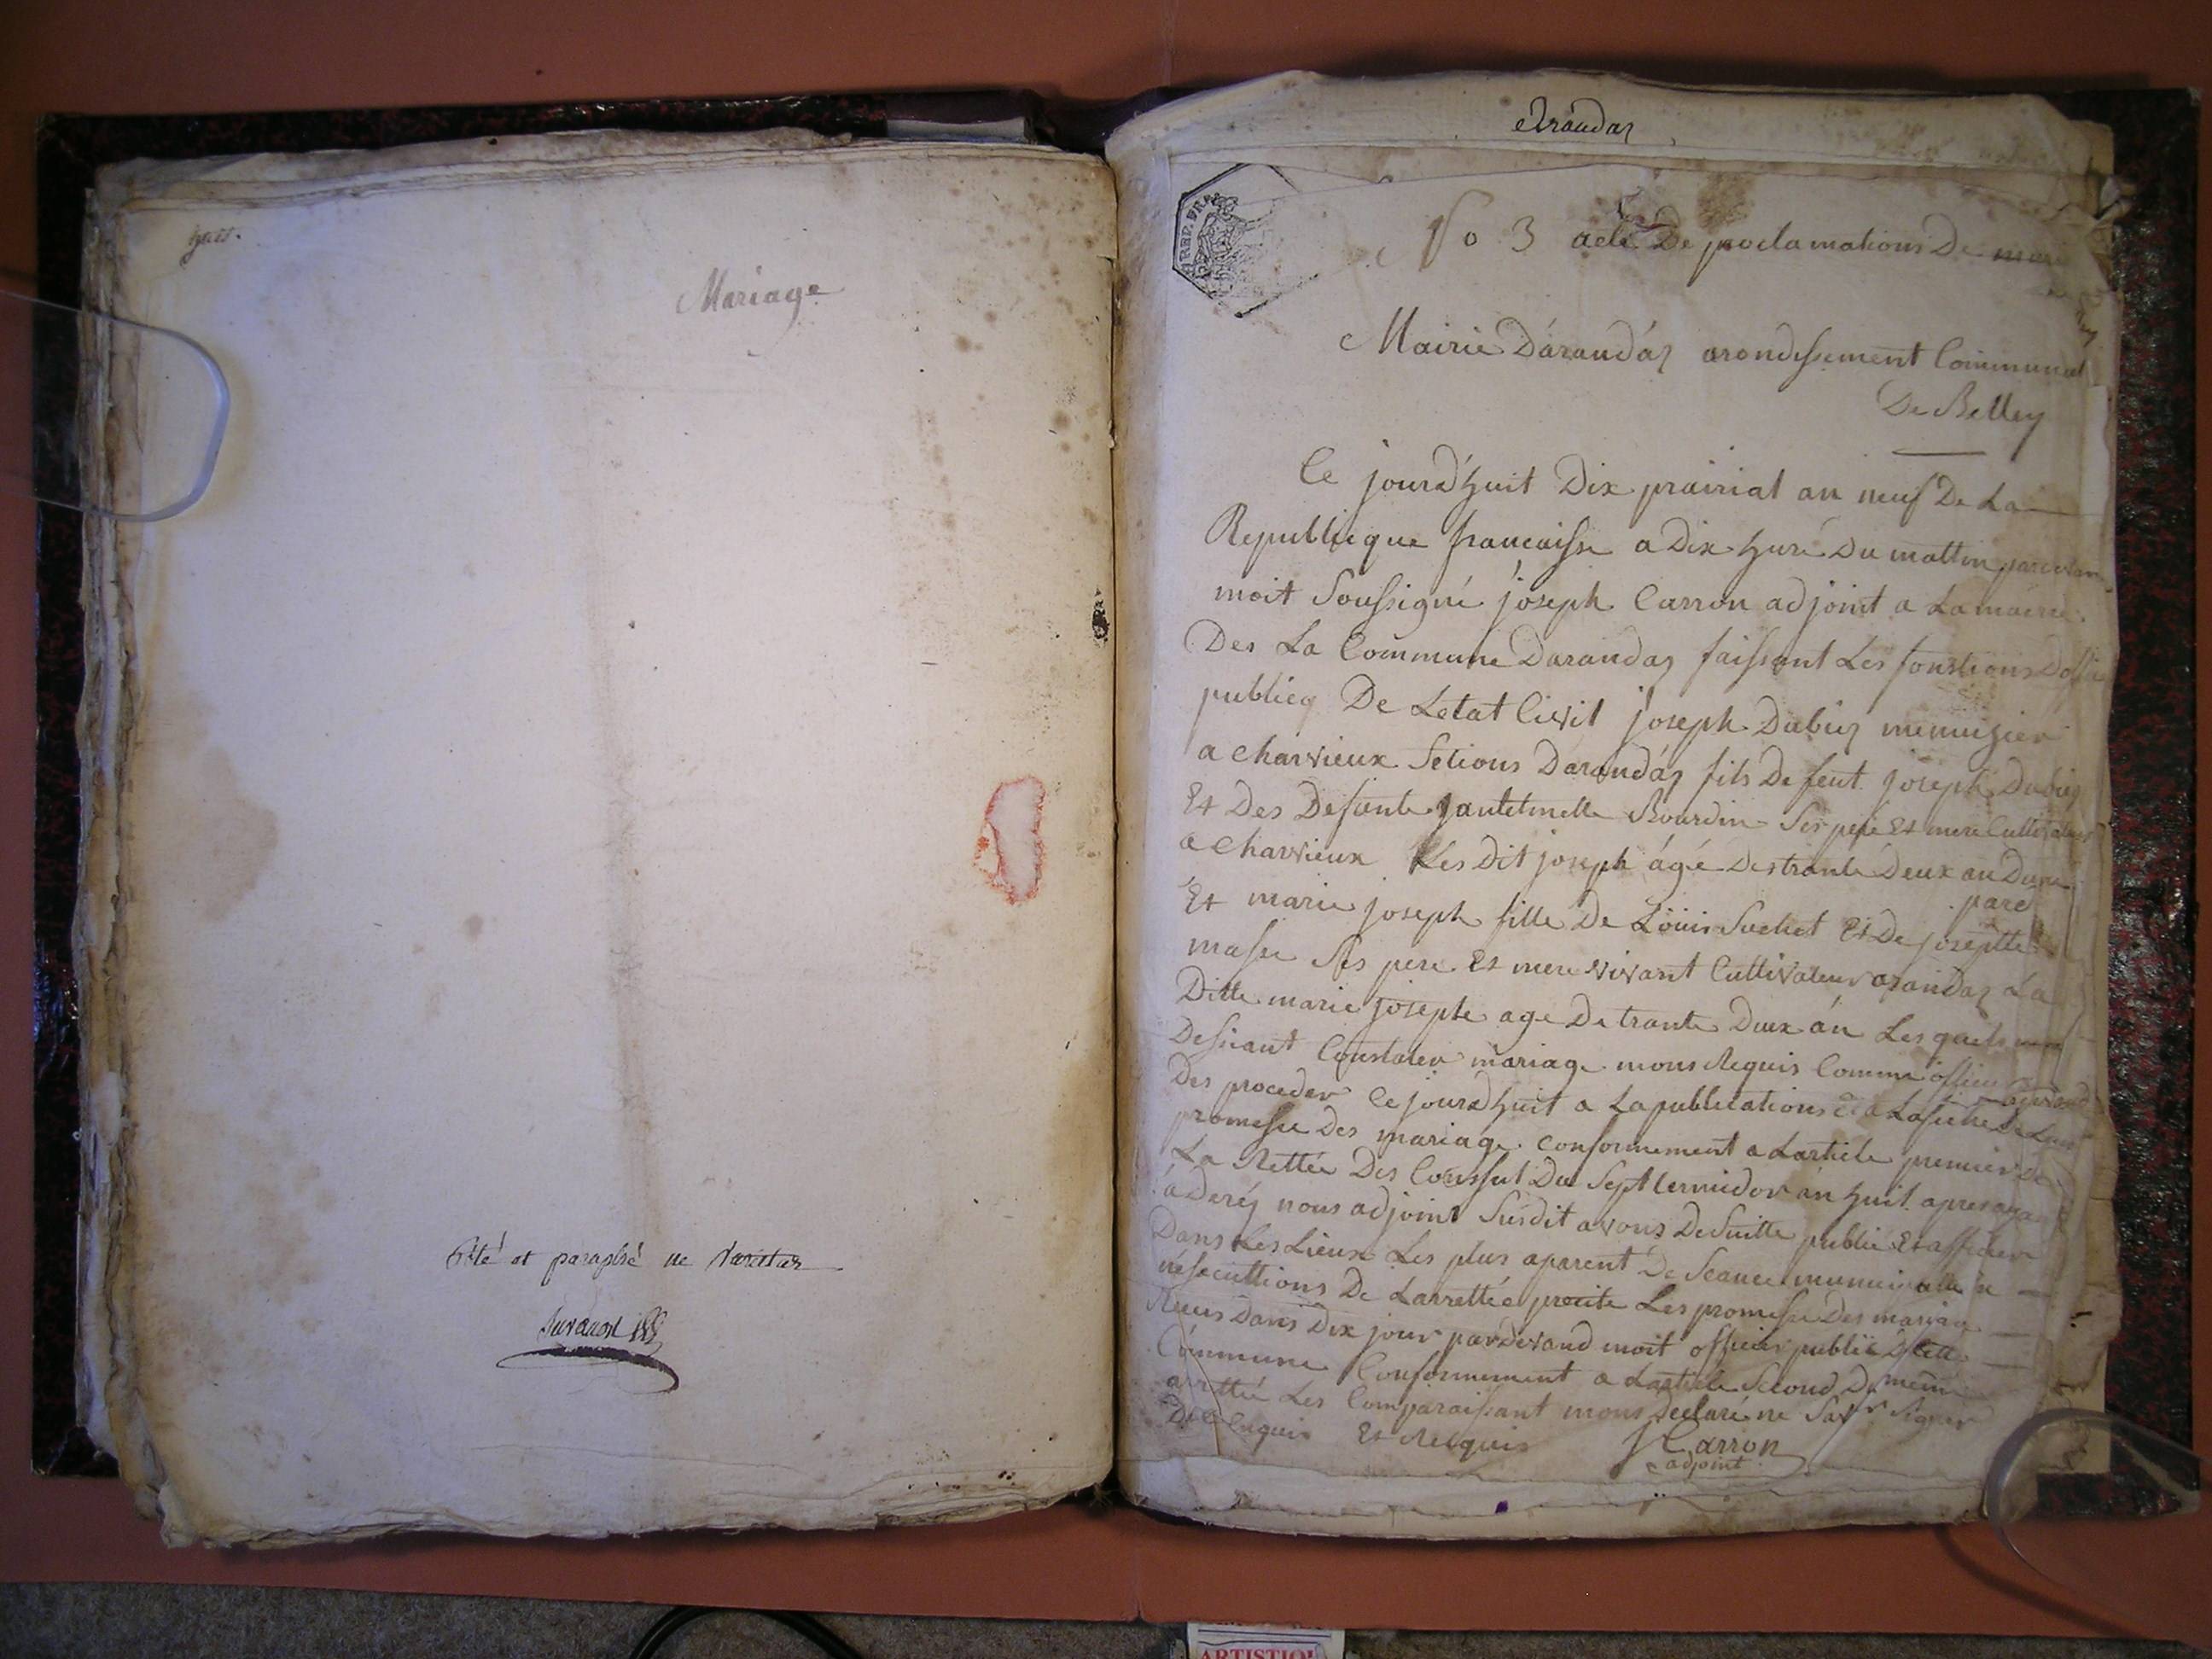 huit.
Mariage
Coté et paraphé ne Varietur
Arandaz
REP. FRA
No 3 acte De proclamations De
Mairie D'arandáz arondissement Communal
De Belley
Ce jourd'huit Dix prairial an neuf De La
Republicque francaisse a Dix hure Du mattin
moit Soussigné joseph Carron adjoint a La mairie
Des La Commune Darandaz faissant Les fonstions
publicq De Letat Civil joseph Dubiez menuizier
a Charvieux Setions Darandáz fils De feut joseph Dubiez
Et Des Defante Bourdin Ses pere Et mere
a Charvieux Les Dit joseph ágé Des trante Deux an
parc
Et marie joseph fille De Loüis Suchet Et De josephte
masse Ses pere Et mere vivant Cultivateur arandaz La
Ditte marie josephe age De trante Deux án Les quels
Desirant Constater mariage mons Requis Comme
Des proceder Ce jourd'huit a La publications
promesse Des mariage conformement a Lartiele premier De
La Rettée Des Conssul Du Sept termidor an huit apres
áderéz nous adjoint Susdit avons De Suitte publié Et afficher
Dans Les Lieux Les plus aparent De Seance
De Larrettée precite Les promesse Des mariag
Dans Dix jour pardevand moit officier public
Commune Conformement a Lartiele Second Du meme
arettée Les Comparaissant mons Declaré ne Savr Signer
De Enquis Et Requis JCarron
adjoint
ARTISTIQU